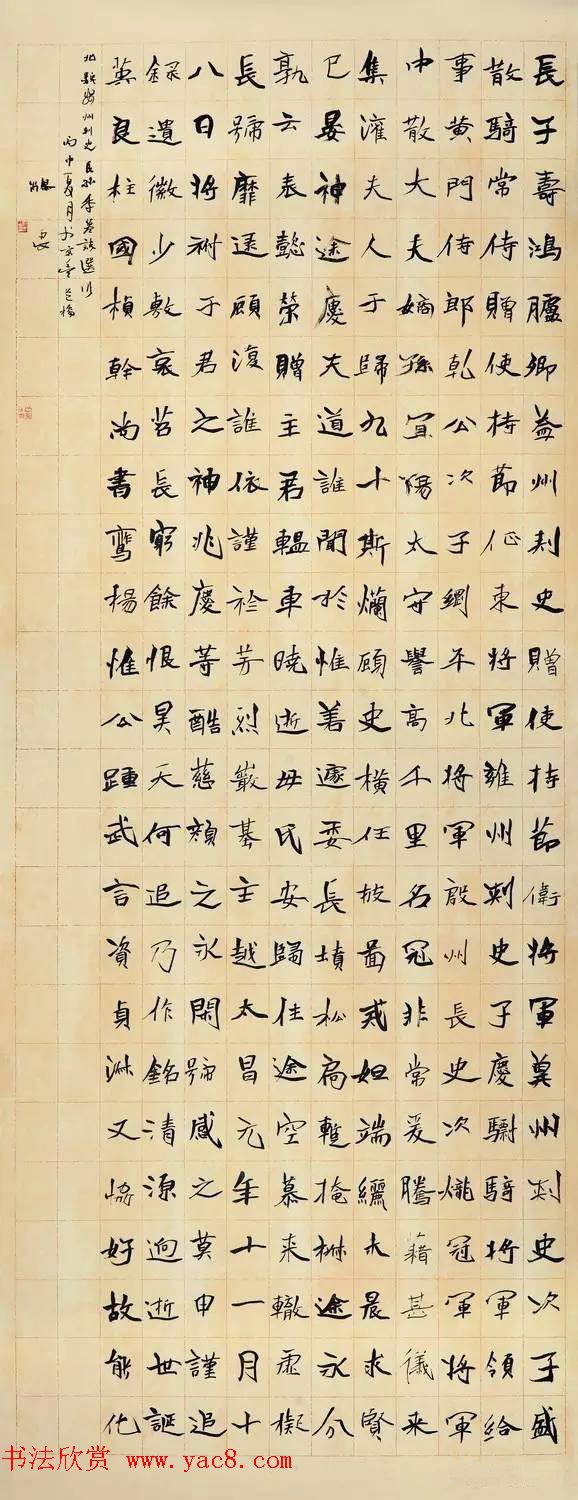 長子壽鴻臚卿益州刺史贈使持節衛將軍冀州刺史次子盛
散騎常侍贈使持節征東將軍雍州刺史子慶驸騎將軍領給
事黄門侍郎乾公次子綱平北將軍殷州長史次熾冠軍將軍
中散大夫嫡孫宜陽太守譽高千里名冠非常爰騰藉甚儀来
集淮夫人于歸九十斯爛顧史橫任披昌戒妲端纚未晨求賢
巳晏神途慶夫道誰聞於惟善遽委長墳松扃蹔掩楸途永分
孰云表懿榮贈主君轀車曉逝母民安歸住途空慕来轍虛擬
長號靡逯顧復誰依謹於芳烈巖墓主越太昌元年十一月十
八日將祔于君之神兆慶等酷慈顔之永閑號感之莫申謹追
録遺徽少敷哀苕長窮餘恨昊天何追乃作銘清源迥逝世誕
蕙良柱國楨幹尚書鸞楊惟公踵武言資貞淋又協好故能化
北魏州刺史長孫季墓誌選
丙申夏月书於
书法欣赏 www.yac8.com